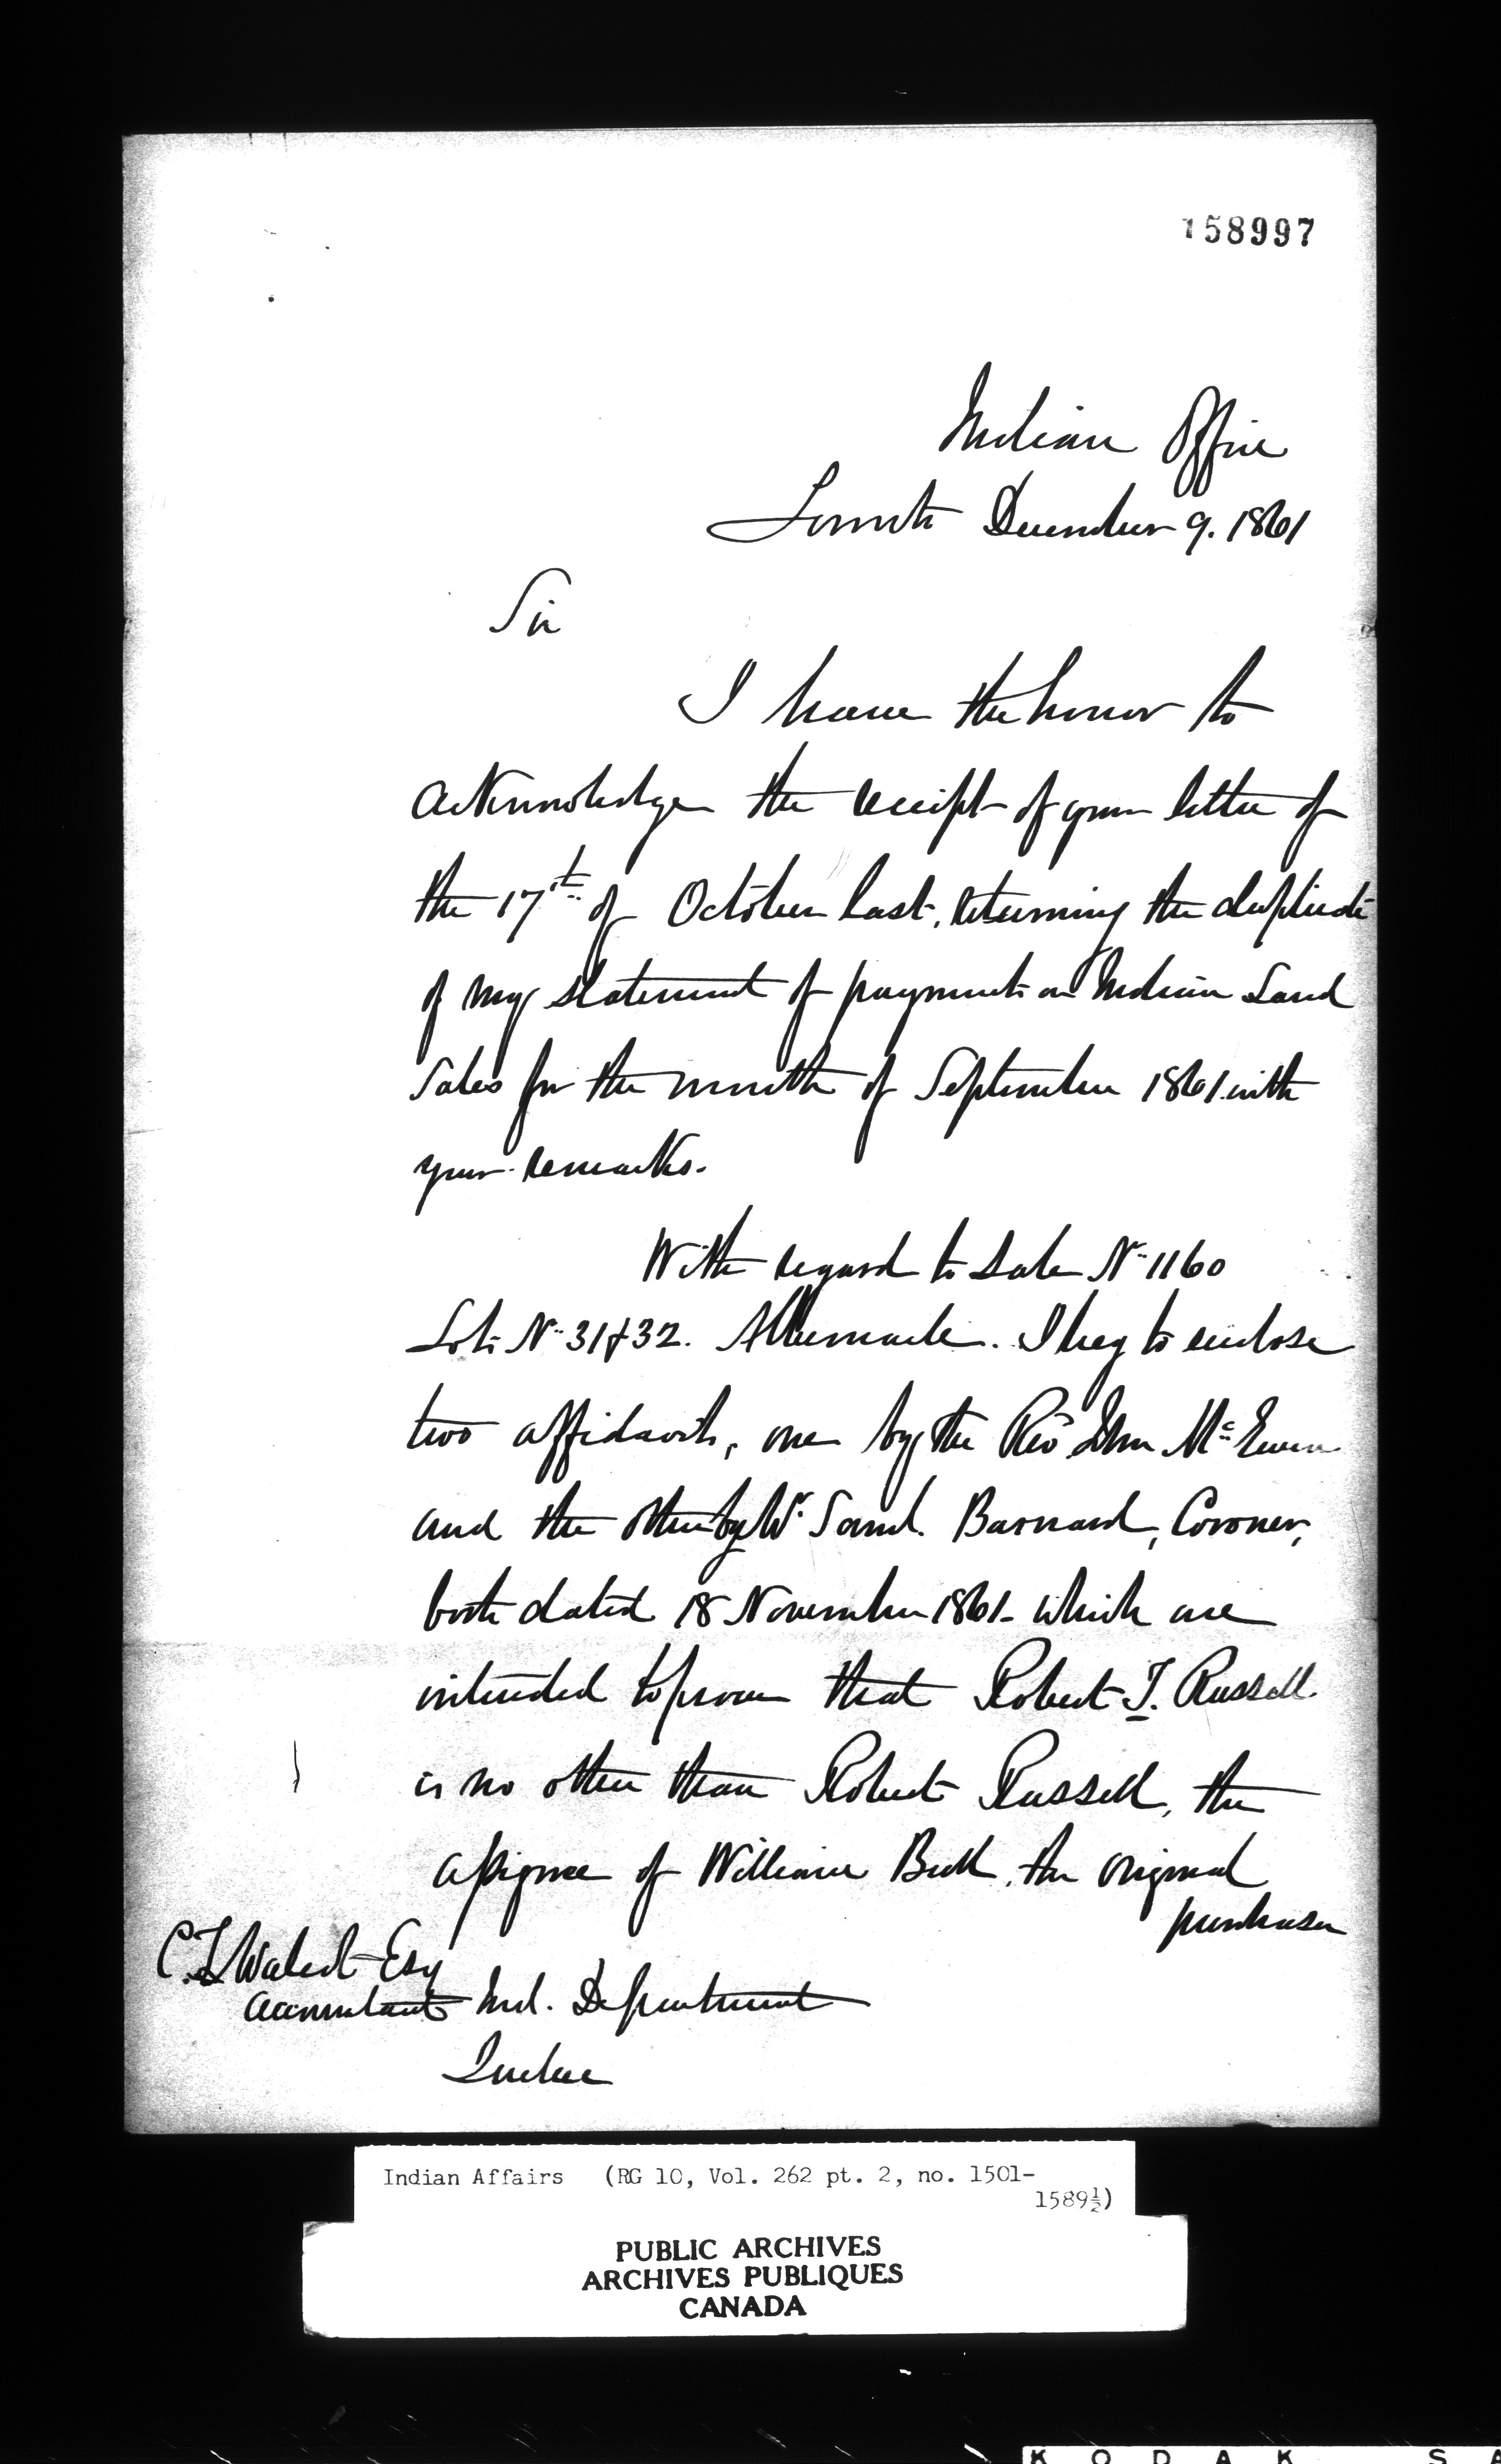 158997
Indian Office
Toronto December 9. 1861
Sir
I have the honor to
acknowledge the receipt of your letter of
the 17th of October last, returning the duplicate
of my statement of payments on Indian Land
Sales for the month of September 1861 with
your remarks.
With regard to Sale No 1160
Lots No 31 & 32. Albemarle. I beg to enclose
two affidavits, one by the Revd John McEwen
and the other by Mr Saml. Barnard, Coroner,
both dated 18 November 1861 - which are
intended to prove that Robert T. Russell
is no other than Robert Russell, the
assignee of William Bull, the original
purchaser
C. T. Walcot Esq
Accountant Ind. Department
Quebec
Indian Affairs (RG 10, Vol. 262 pt. 2, no. 1501-
1589½)
PUBLIC ARCHIVES
ARCHIVES PUBLIQUES
CANADA
KODAK SA